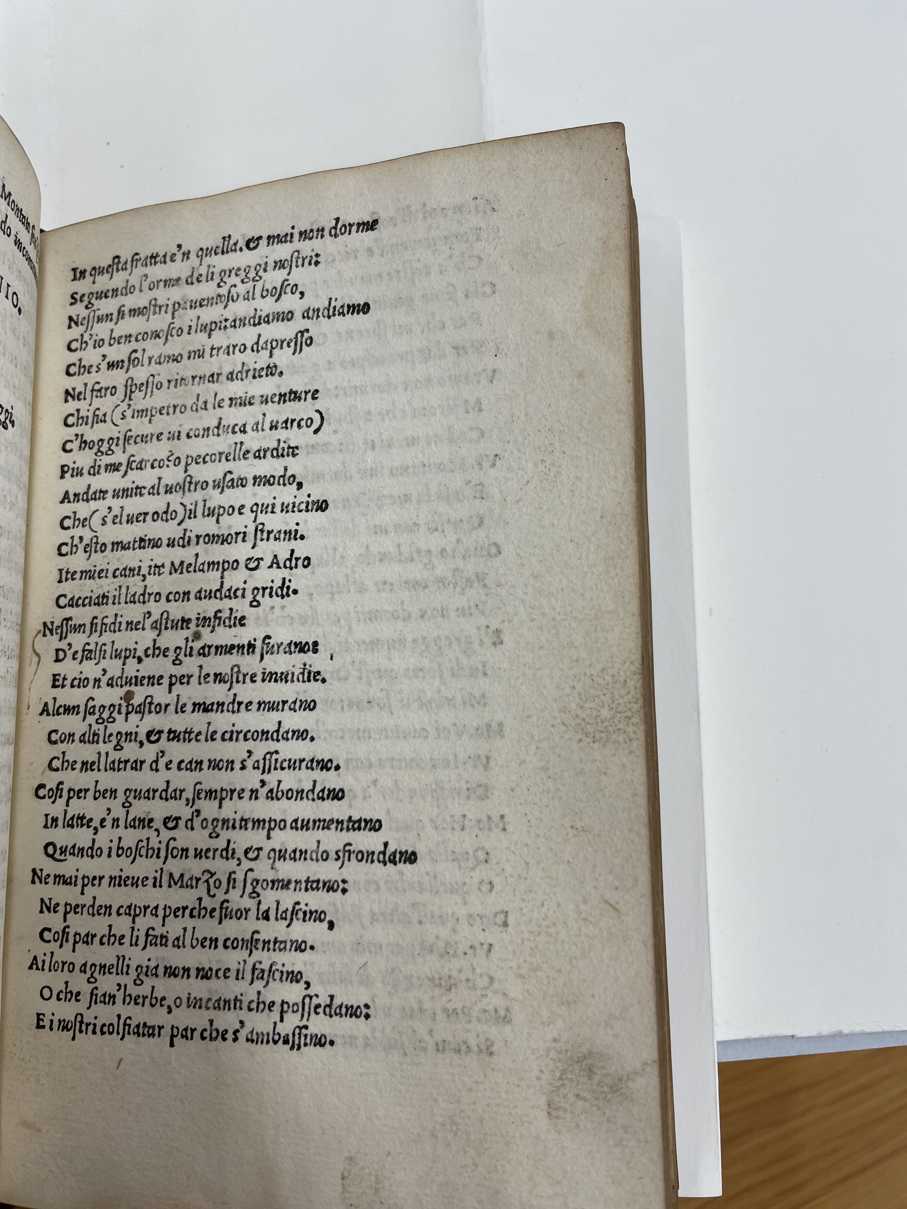 Montan
do incon
NIO.
ggi,
In questa fratta e'n quella. & mai non dorme
Seguendo l'orme deli greggi nostri:
Nessun si mostri pauentoso al bosco,
Ch'io ben conosco i lupi: andiamo andiamo
Che s'un sol ramo mi traro dapresso
Nel faro spesso ritornar adrieto.
Chi fia (s'impetro da le mie uenture
C'hoggi secure ui conduca al uarco)
Piu di me scarco? o pecorelle ardite
Andate unite al uostro usato modo,
Che (s'el uer odo) il lupo e qui uicino
Ch'esto mattino udi romori strani.
Ite miei cani, ite Melampo & Adro
Cacciati il ladro con audaci gridi.
Nessun si fidi nel'astute insidie
D'e falsi lupi, che gli armenti furano:
Et cio n'aduiene per le nostre inuidie.
Alcun saggi pastor le mandre murano
Con alti legni, & tutte le circondano.
Che nel latrar d'e can non s'assicurano.
Cosi per ben guardar, sempre n'abondano
In latte, e'n lane, & d'ogni tempo aumentano
Quando i boschi son uerdi, & quando sfrondano
Ne mai per nieue il Marzo si sgomentano:
Ne perden capra perche fuor la lascino,
Cosi par che li fati al ben consentano.
Ai loro agnelli gia non noce il fascino,
O che sian'herbe, o incanti che possedano:
E i nostri col fiatar par che s'ambassino.